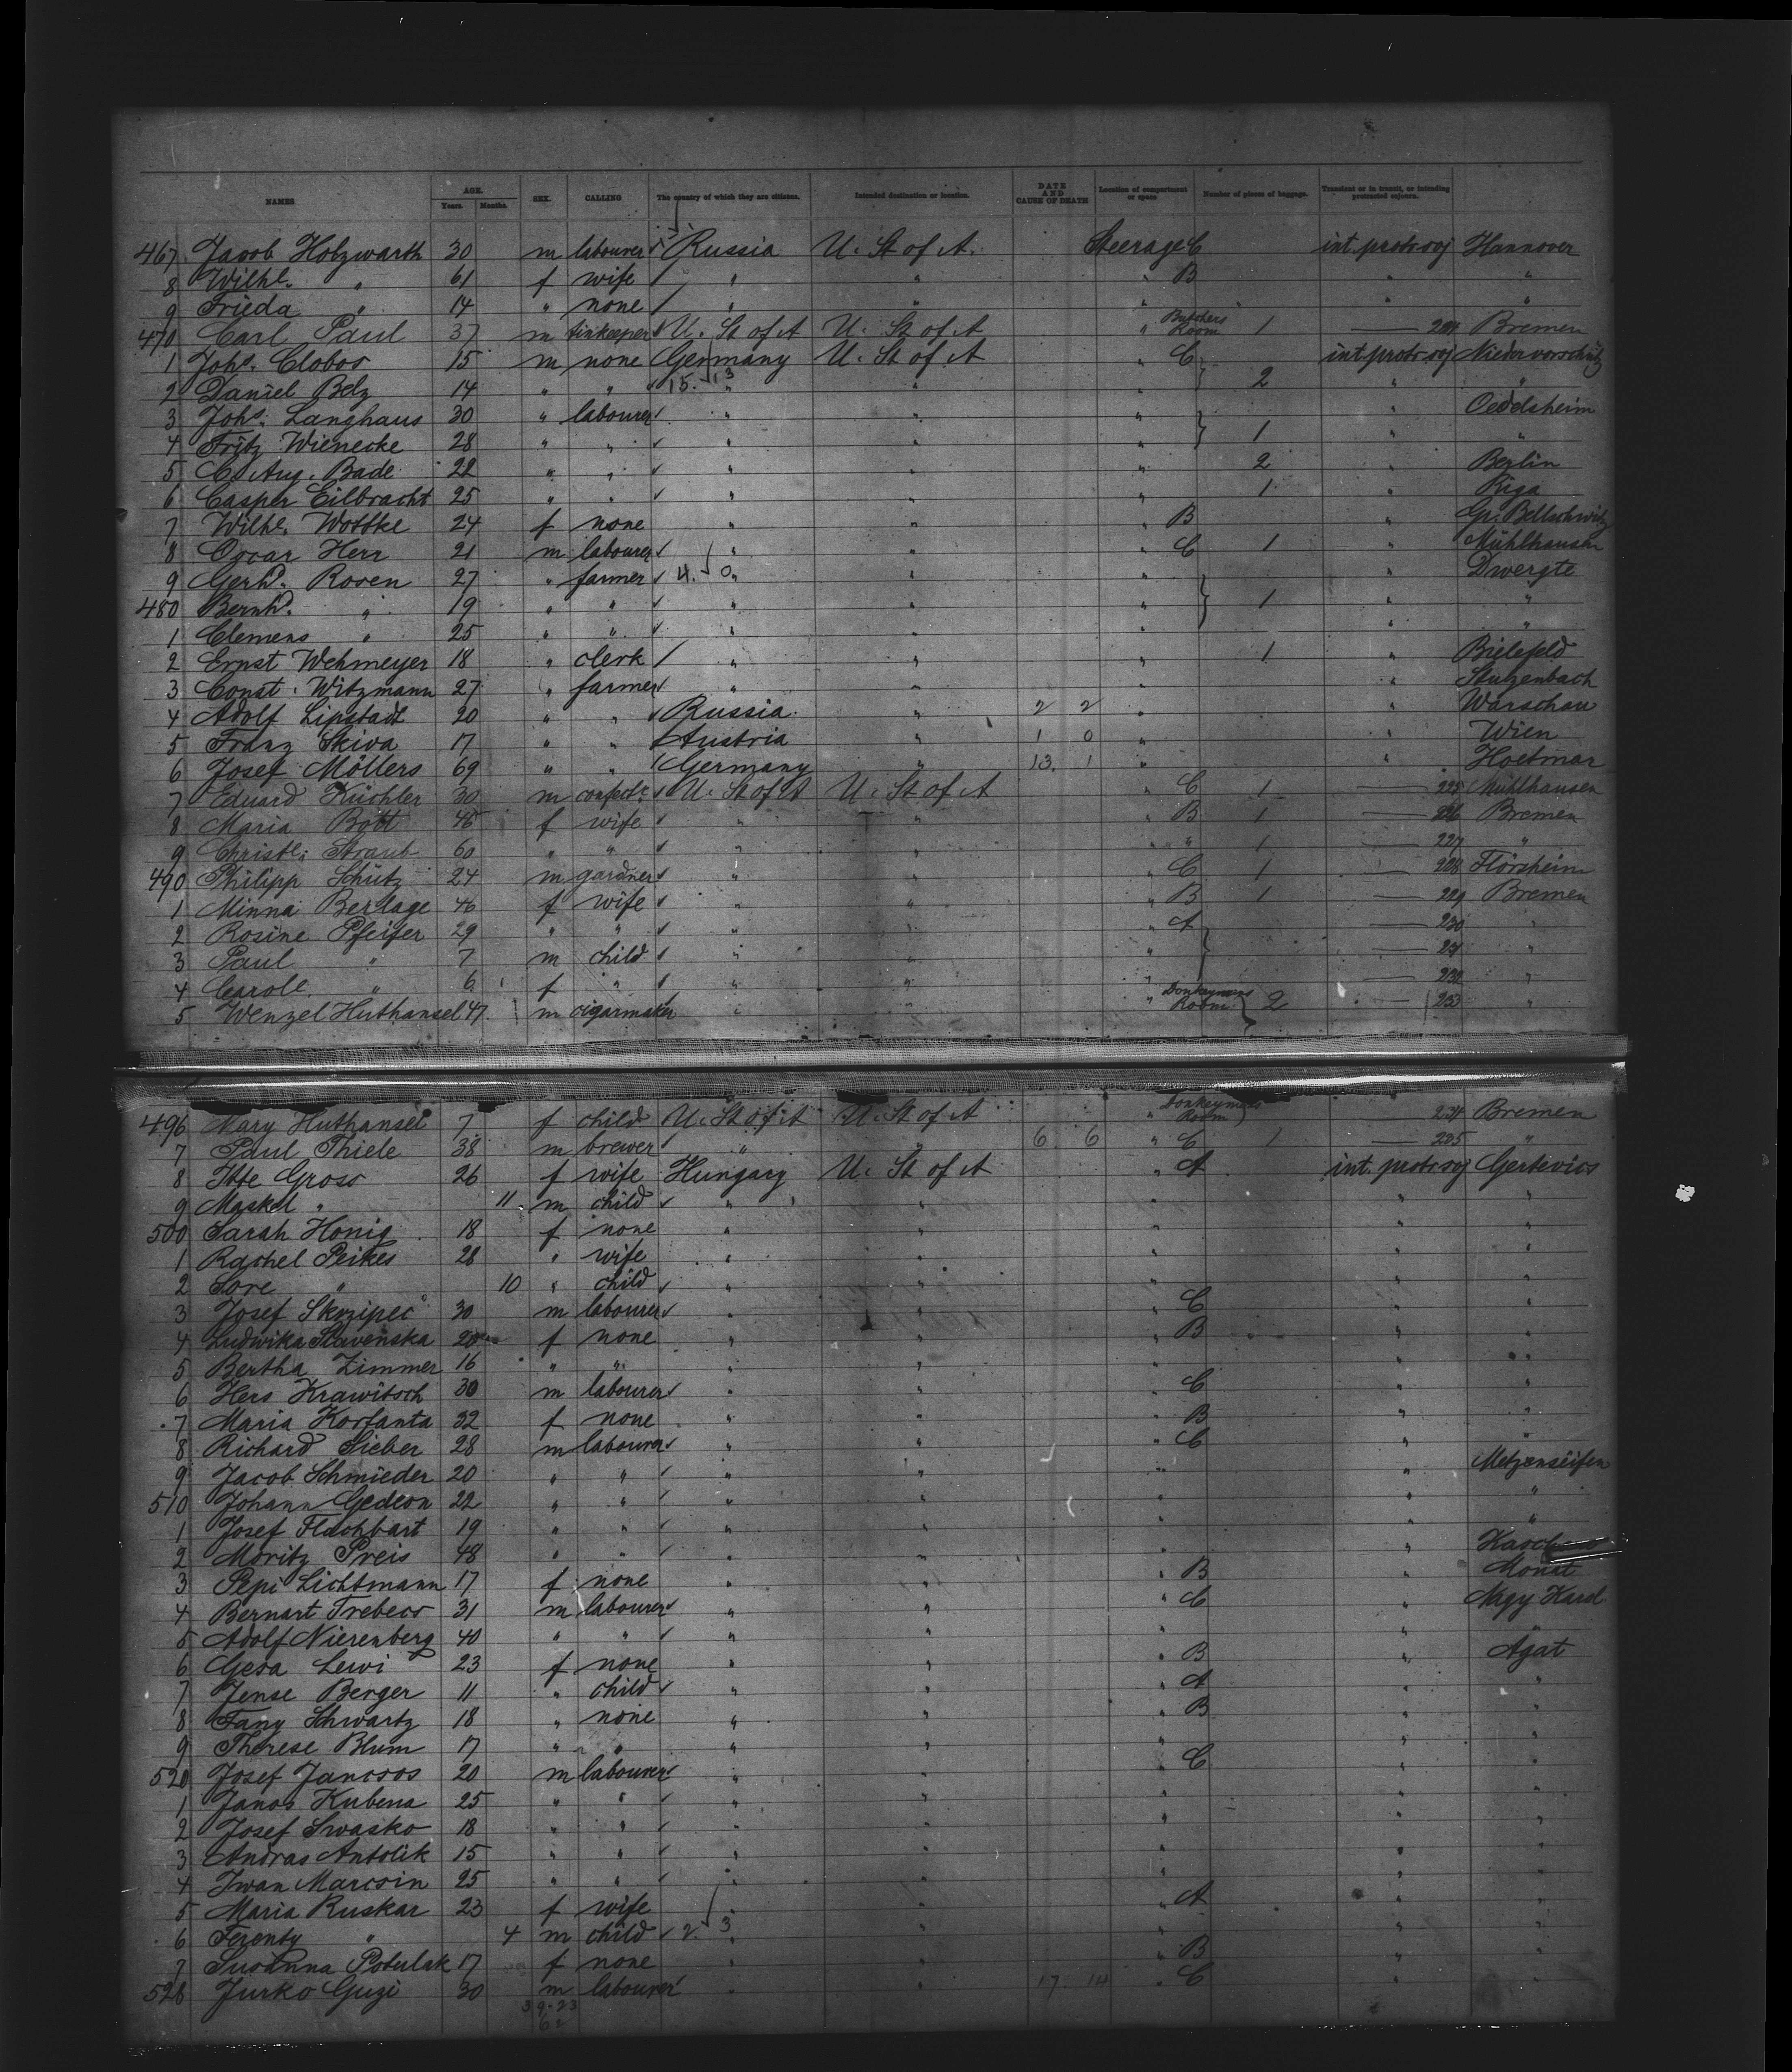 NAMES AGE. Years. Months. SEX. CALLING The country of which they are citizens. Intended destination or location. DATE AND CAUSE OF DEATH Location of compartment or space Number of pieces of baggage. Transient or in transit, or intending protracted sojourn.
467 Jacob Holzwarth 30 m labourer Russia U. St of A. Steerage C int. protr. soj Hannover
8 Wilhe. " 61 f wife " " " B " "
9 Frieda " 14 " none " " " " "
470 Carl Paul 37 m U. St of A U. St of A " Butchers Room 1 — Bremen
1 Johs. Clobos 15 m none Germany U. St of A " C int. protr. soj
2 Daniel Belz 14 " " 15. 13 " " " 2 " "
3 Johs. Langhaus 30 " labourer " " " " Oedelsheim
4 Fritz Wienecke 28 " " " " " 1 " "
5 C. Aug. Bade 22 " " " " " 2 " Berlin
6 Casper Eilbracht 25 " " " " " 1 " Riga
7 Wilhe. Wottke 24 f none " " B "
8 Oscar Herr 21 m labourer " " " C 1 " Mühlhausen
9 Gerhd. Rosen 27 " farmer 4. 0 " " " " Dwergte
480 Bernhd. " 19 " " " " " 1 " "
1 Clemens " 25 " " " " " " "
2 Ernst Wehmeyer 18 " clerk " " " 1 " Bielefeld
3 Const. Witzmann 27 " farmer " " " " Stutzenbach
4 Adolf Lipstadt 20 " " Russia " 2 2 " " Warschau
5 Franz Skiva 17 " " Austria " 1 0 " " Wien
6 Josef Möllers 69 " " Germany " 13. 1 " " Hoetmar
7 Eduard Küchler 30 m U. St of A U. St of A " C 1 — 225 Mühlhausen
8 Maria Bott 45 f wife " " " B 1 — 226 Bremen
9 Christe. Straub 60 " " " " " " 1 — 227 "
490 Philipp Schütz 24 m gardner " " " C 1 — 228 Flörsheim
1 Minna Berlage 46 f wife " " " B 1 — 229 Bremen
2 Rosine Pfeifer 29 " " " " " A — 230 "
3 Paul " 7 m child " " " — 231 "
4 Carole " 6 f " " " " — 232 "
5 Wenzel Huthansel 47 m cigarmaker " " " Donkeymens Room 2 — 233 "
496 Mary Huthansel 7 f child U. St of A U. St of A " Donkeymens Room — 234 Bremen
7 Paul Thiele 38 m brewer " " 6 6 " C 1 — 235 "
8 Itte Gross 26 f wife Hungary U. St of A " A int. protr. soj
9 Maskel " 11 m child " " " " "
500 Sarah Honig 18 f none " " " " "
1 Rachel Peikes 28 " wife " " " " "
2 Sore " 10 " child " " " " "
3 Josef Skrzipec 30 m labourer " " " C " "
4 Ludwika Slavenska 20 f none " " " B " "
5 Bertha Zimmer 16 " " " " " " "
6 Hers Krawitsch 30 m labourer " " " C " "
7 Maria Korfanta 32 f none " " " B " "
8 Richard Sieber 28 m labourer " " " C " "
9 Jacob Schmieder 20 " " " " " " Metzenseifen
510 Johann Gedeon 22 " " " " " " "
1 Josef Flachbart 19 " " " " " " "
2 Moritz Preis 48 " " " " " "
3 Pepi Lichtmann 17 f none " " " B " Monat
4 Bernart Trebecs 31 m labourer " " " C " Nagy Karol
5 Adolf Nierenberg 40 " " " " " " "
6 Gesa Lewi 23 f none " " " B " Agat
7 Jense Berger 11 " child " " " A " "
8 Fany Schwartz 18 " none " " " B " "
9 Therese Blum 17 " " " " " " "
520 Josef Jancsos 20 m labourer " " " C " "
1 Janos Kubena 25 " " " " " " "
2 Josef Swasko 18 " " " " " " "
3 Andras Antolik 15 " " " " " " "
4 Iwan Marcsin 25 " " " " " " "
5 Maria Ruskar 23 f wife " " " A " "
6 Ferenty " 4 m child 2. 3 " " " " "
7 Susanna Potulak 17 f none " " " B " "
528 Jurko Guzi 30 m labourer " " 17 14 " C " "
39-23
62